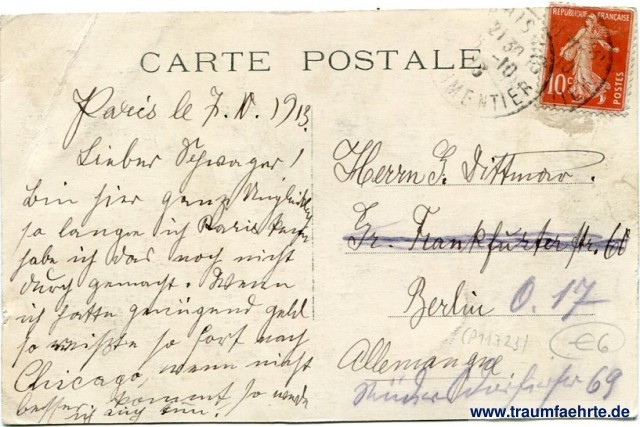 CARTE POSTALE
RÉPUBLIQUE FRANÇAISE
10c
POSTES
21 30
8-10
MENTIER
Paris le 7. 10. 1913.
Lieber Schwager!
bin hier ganz Unglücklich
so lange ich Paris kenne
habe ich das noch nicht
durch gemacht. Wenn
ich hatte genügend geld
so so fort nach
Chicago, wenn nicht
besser kommt so werde
ich auch tun.
Herrn G. Dittmar.
Gr. Frankfurter str. 60
Berlin O. 17
(P11723)
€6
Allemangne
69
www.traumfaehrte.de